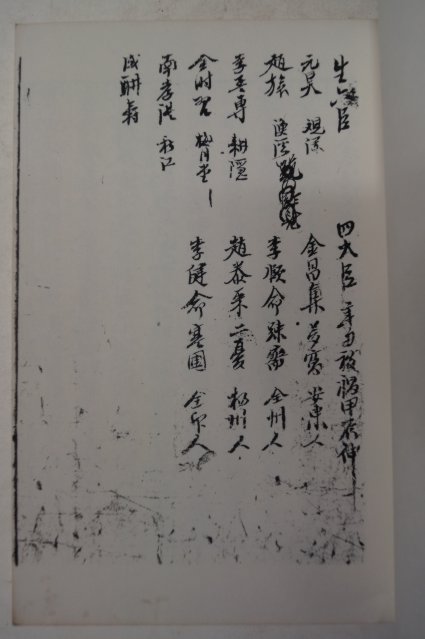 生六臣
元昊 观瀾
趙旅 漁溪
李孟專 耕隱
金时習 梅月堂
南孝温 秋江
成聃壽
四大臣 辛丑被禍甲辰伸
金昌集 夢窩 安東人
李頤命 疎齋 全州人
趙泰采 二憂 楊州人
李健命 寒圃 人